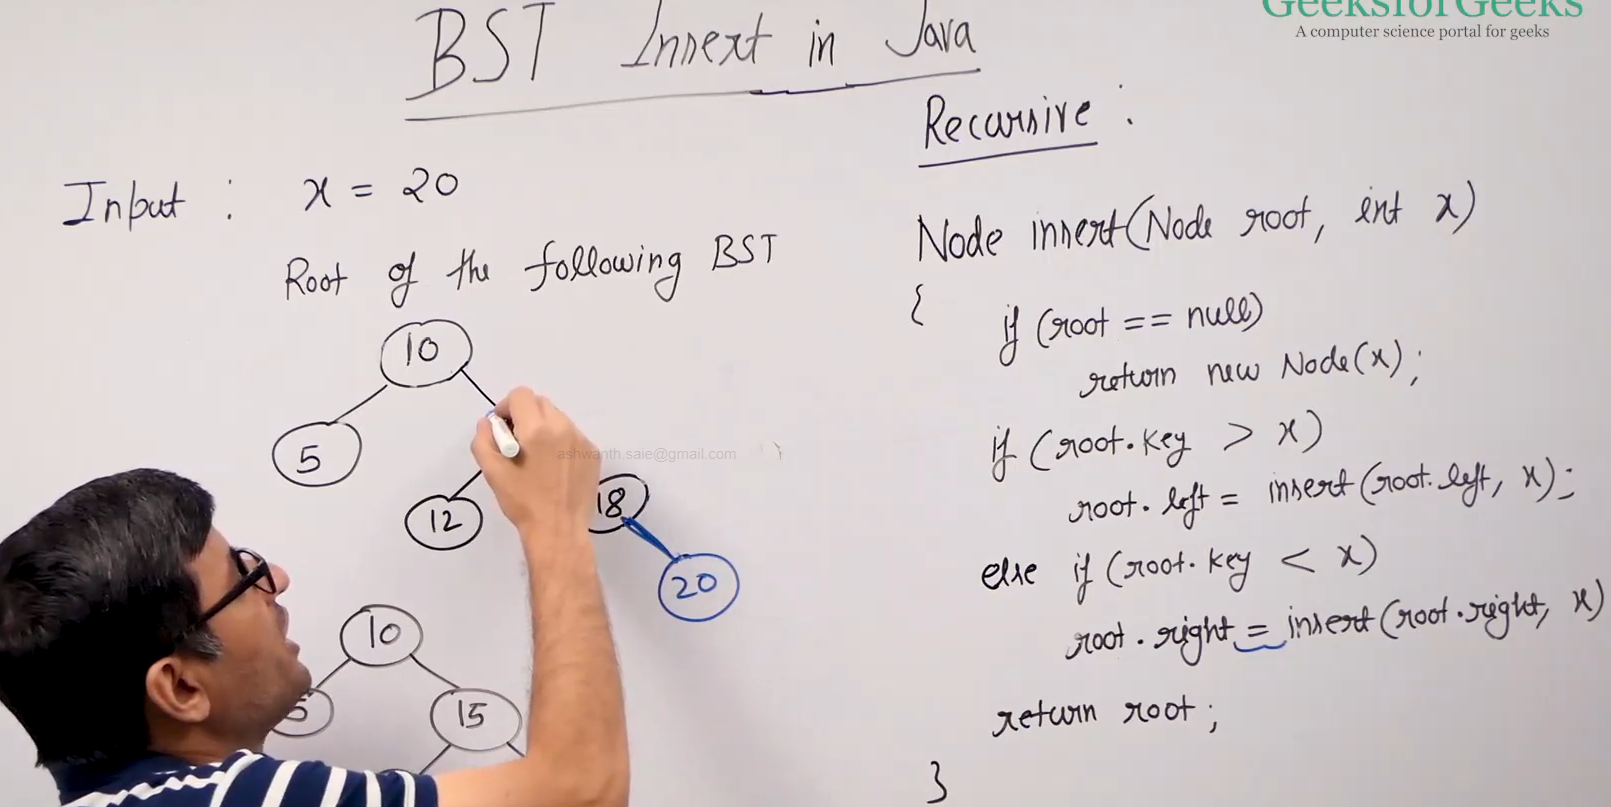 GeeksforGeeks
A computer science portal for geeks
BST Insert in Java
Input : x = 20
Root of the following BST
10
5
12
18
20
10
5
15
ashwanth.saie@gmail.com
Recursive :
Node insert(Node root, int x)
{
if (root == null)
return new Node(x);
if (root.key > x)
root.left = insert(root.left, x);
else if (root.key < x)
root.right = insert(root.right, x)
return root;
}